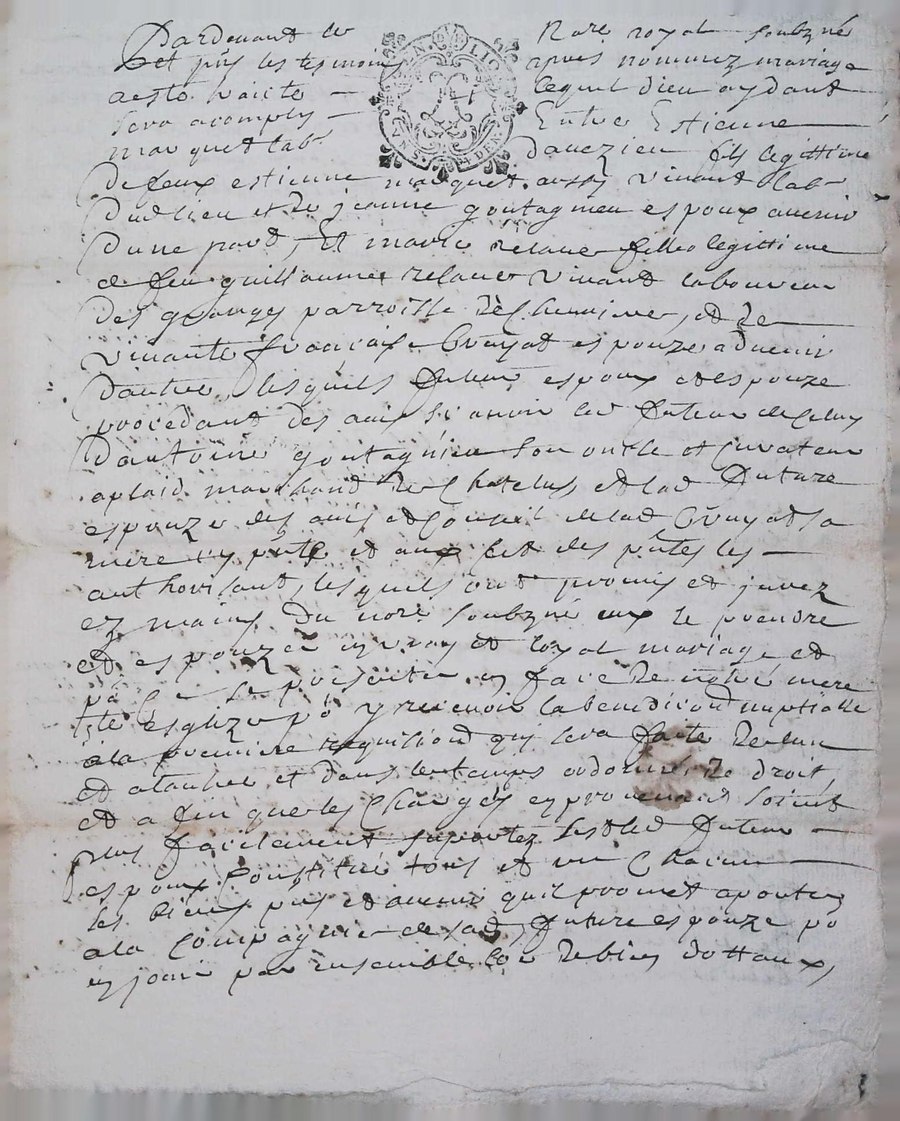 Pardevant le Nore royal soubzné
et pñs les tesmoins apres nommez mariage
a esté traicté lequel dieu aydant
sera acomply Entre Estienne
marquet labr davezieu fils legittime
de feux estienne marquet aussy vivant labr
dud lieu et de jeanne goutagnieu espoux avenir
dune part, Et marie relave fille legittime
de feu guillaume relave vivant laboureur
des granges parroisse de , et de
vivante francoise Gruyat espouze advenir
dautre, lesquels futeurs espoux et espouze
procedant des avis scavoir led futeur de celuy
dantoine goutagnieu son oncle et curateur
aplaid marchand de Chatelus et lad future
espouze des avis et conseil de lad Gruyat sa
mere icy pñte et aux fet des pñtes les
authorisant, lesquels ont promis et jurez
ez mains du nore soubzné eux se prendre
et espouzer en vray et loyal mariage et
po ce se presenter en face de nostre mere
ste esglize po y recevoir la benediction nuptialle
a la premiere requisition quy sera faite de lun
et a lautre et dans le temps ordonné de droit,
et a fin que les charges en provenant soient
plus facilement suportez led futeur
espoux constitue tous et un chacun
les biens pñs et avenir quil promet aporter
a la compagnie de sad, future espouze po
en jouir par ensemble come de bien dottaux,